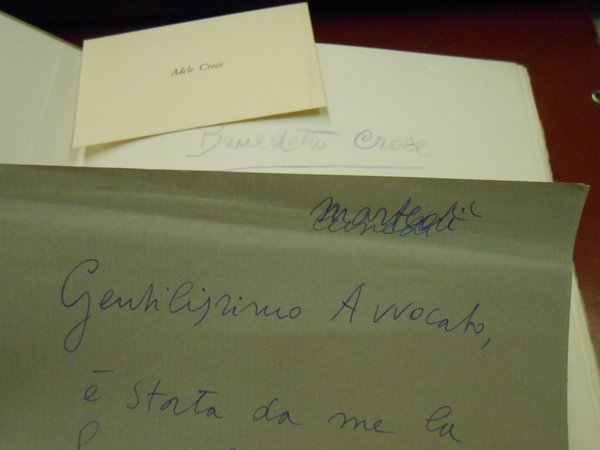 Adele Croce
Benedetto Croce
martedì
Gentilissimo Avvocato,
è stata da me la